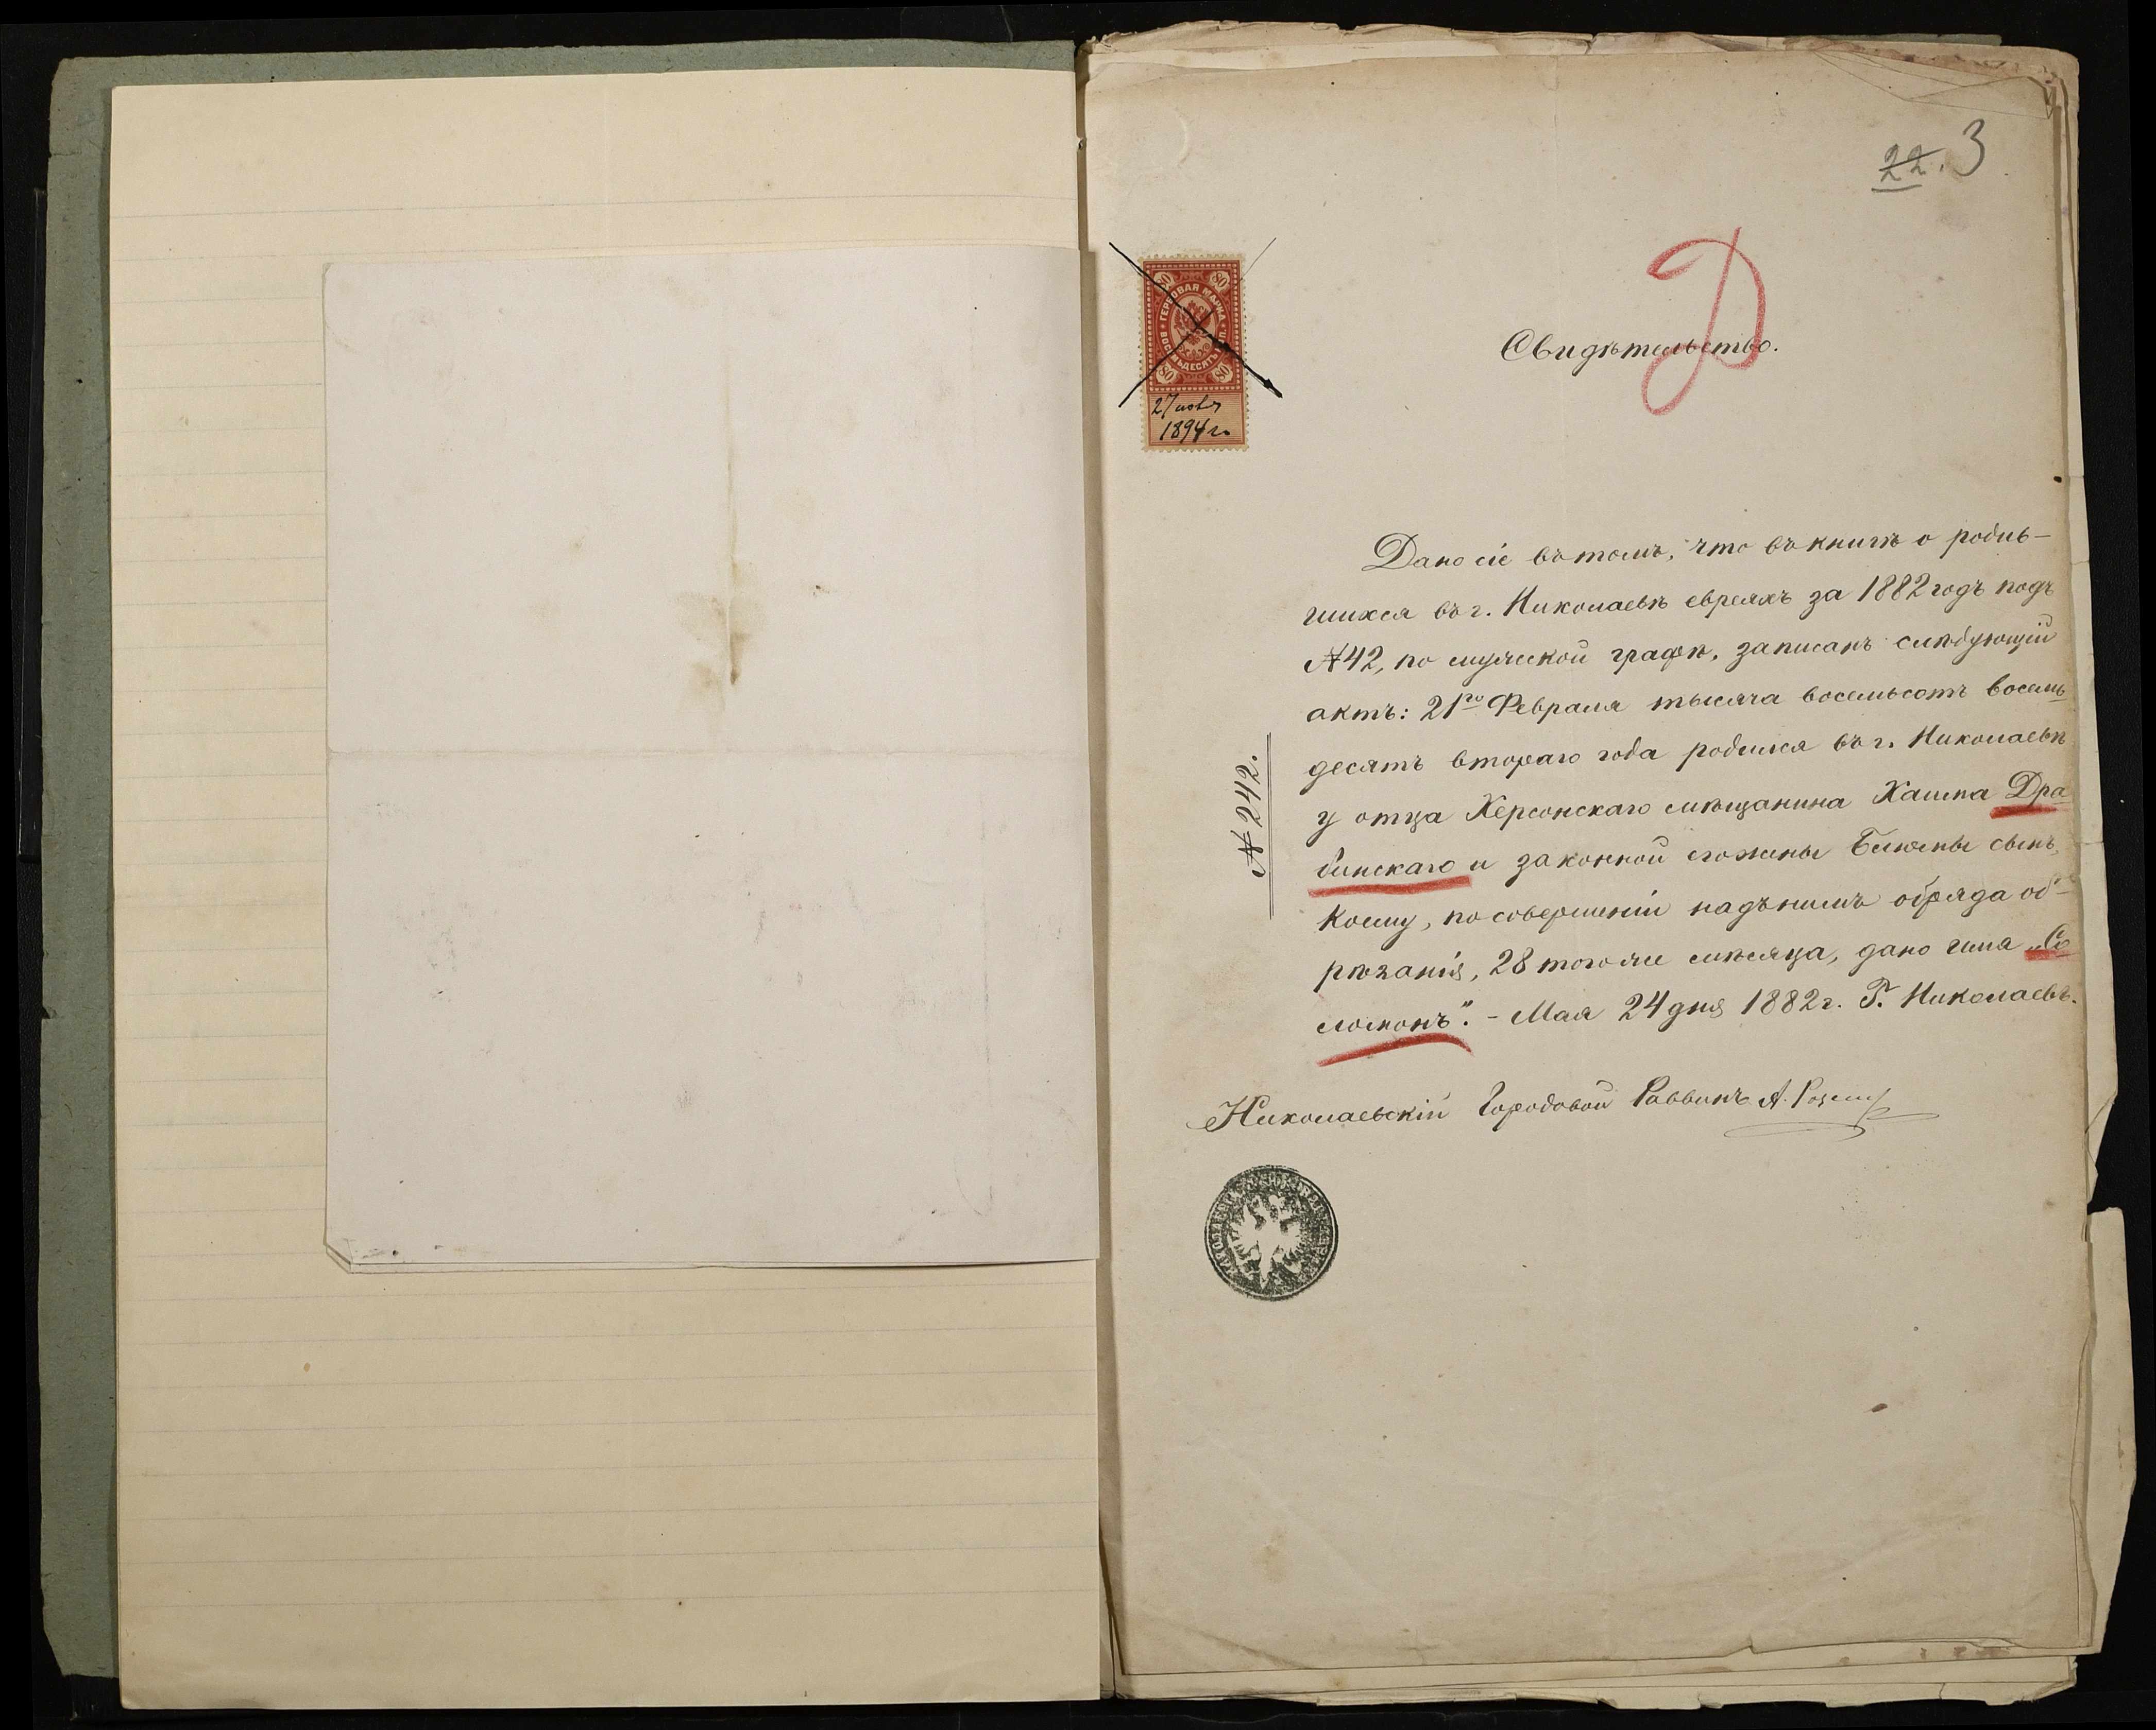 22. 3
Д
80 80
ГЕРБОВАЯ МАРКА
ВОСЕМЬДЕСЯТЪ КОП.
80 80
27 1894 г.
Свидѣтельство.
Дано сіе въ томъ, что въ книгѣ о родив-
шихся въ г. Николаевѣ евреяхъ за 1882 годъ подъ
№ 42, по мужеской графѣ, записанъ слѣдующій
актъ: 21го Февраля тысяча восемьсотъ восемь
десятъ втораго года родился въ г. Николаевѣ
у отца Херсонскаго мѣщанина Хаима Дра
бинскаго и законной его жены сынъ,
коему, по совершеніи надъ нимъ обряда об-
рѣзанія, 28 того же мѣсяца, дано имя „Со
ломонъ". - Мая 24 дня 1882 г. Г. Николаевъ.
№ 242.
Николаевскій Городовой Раввинъ А.